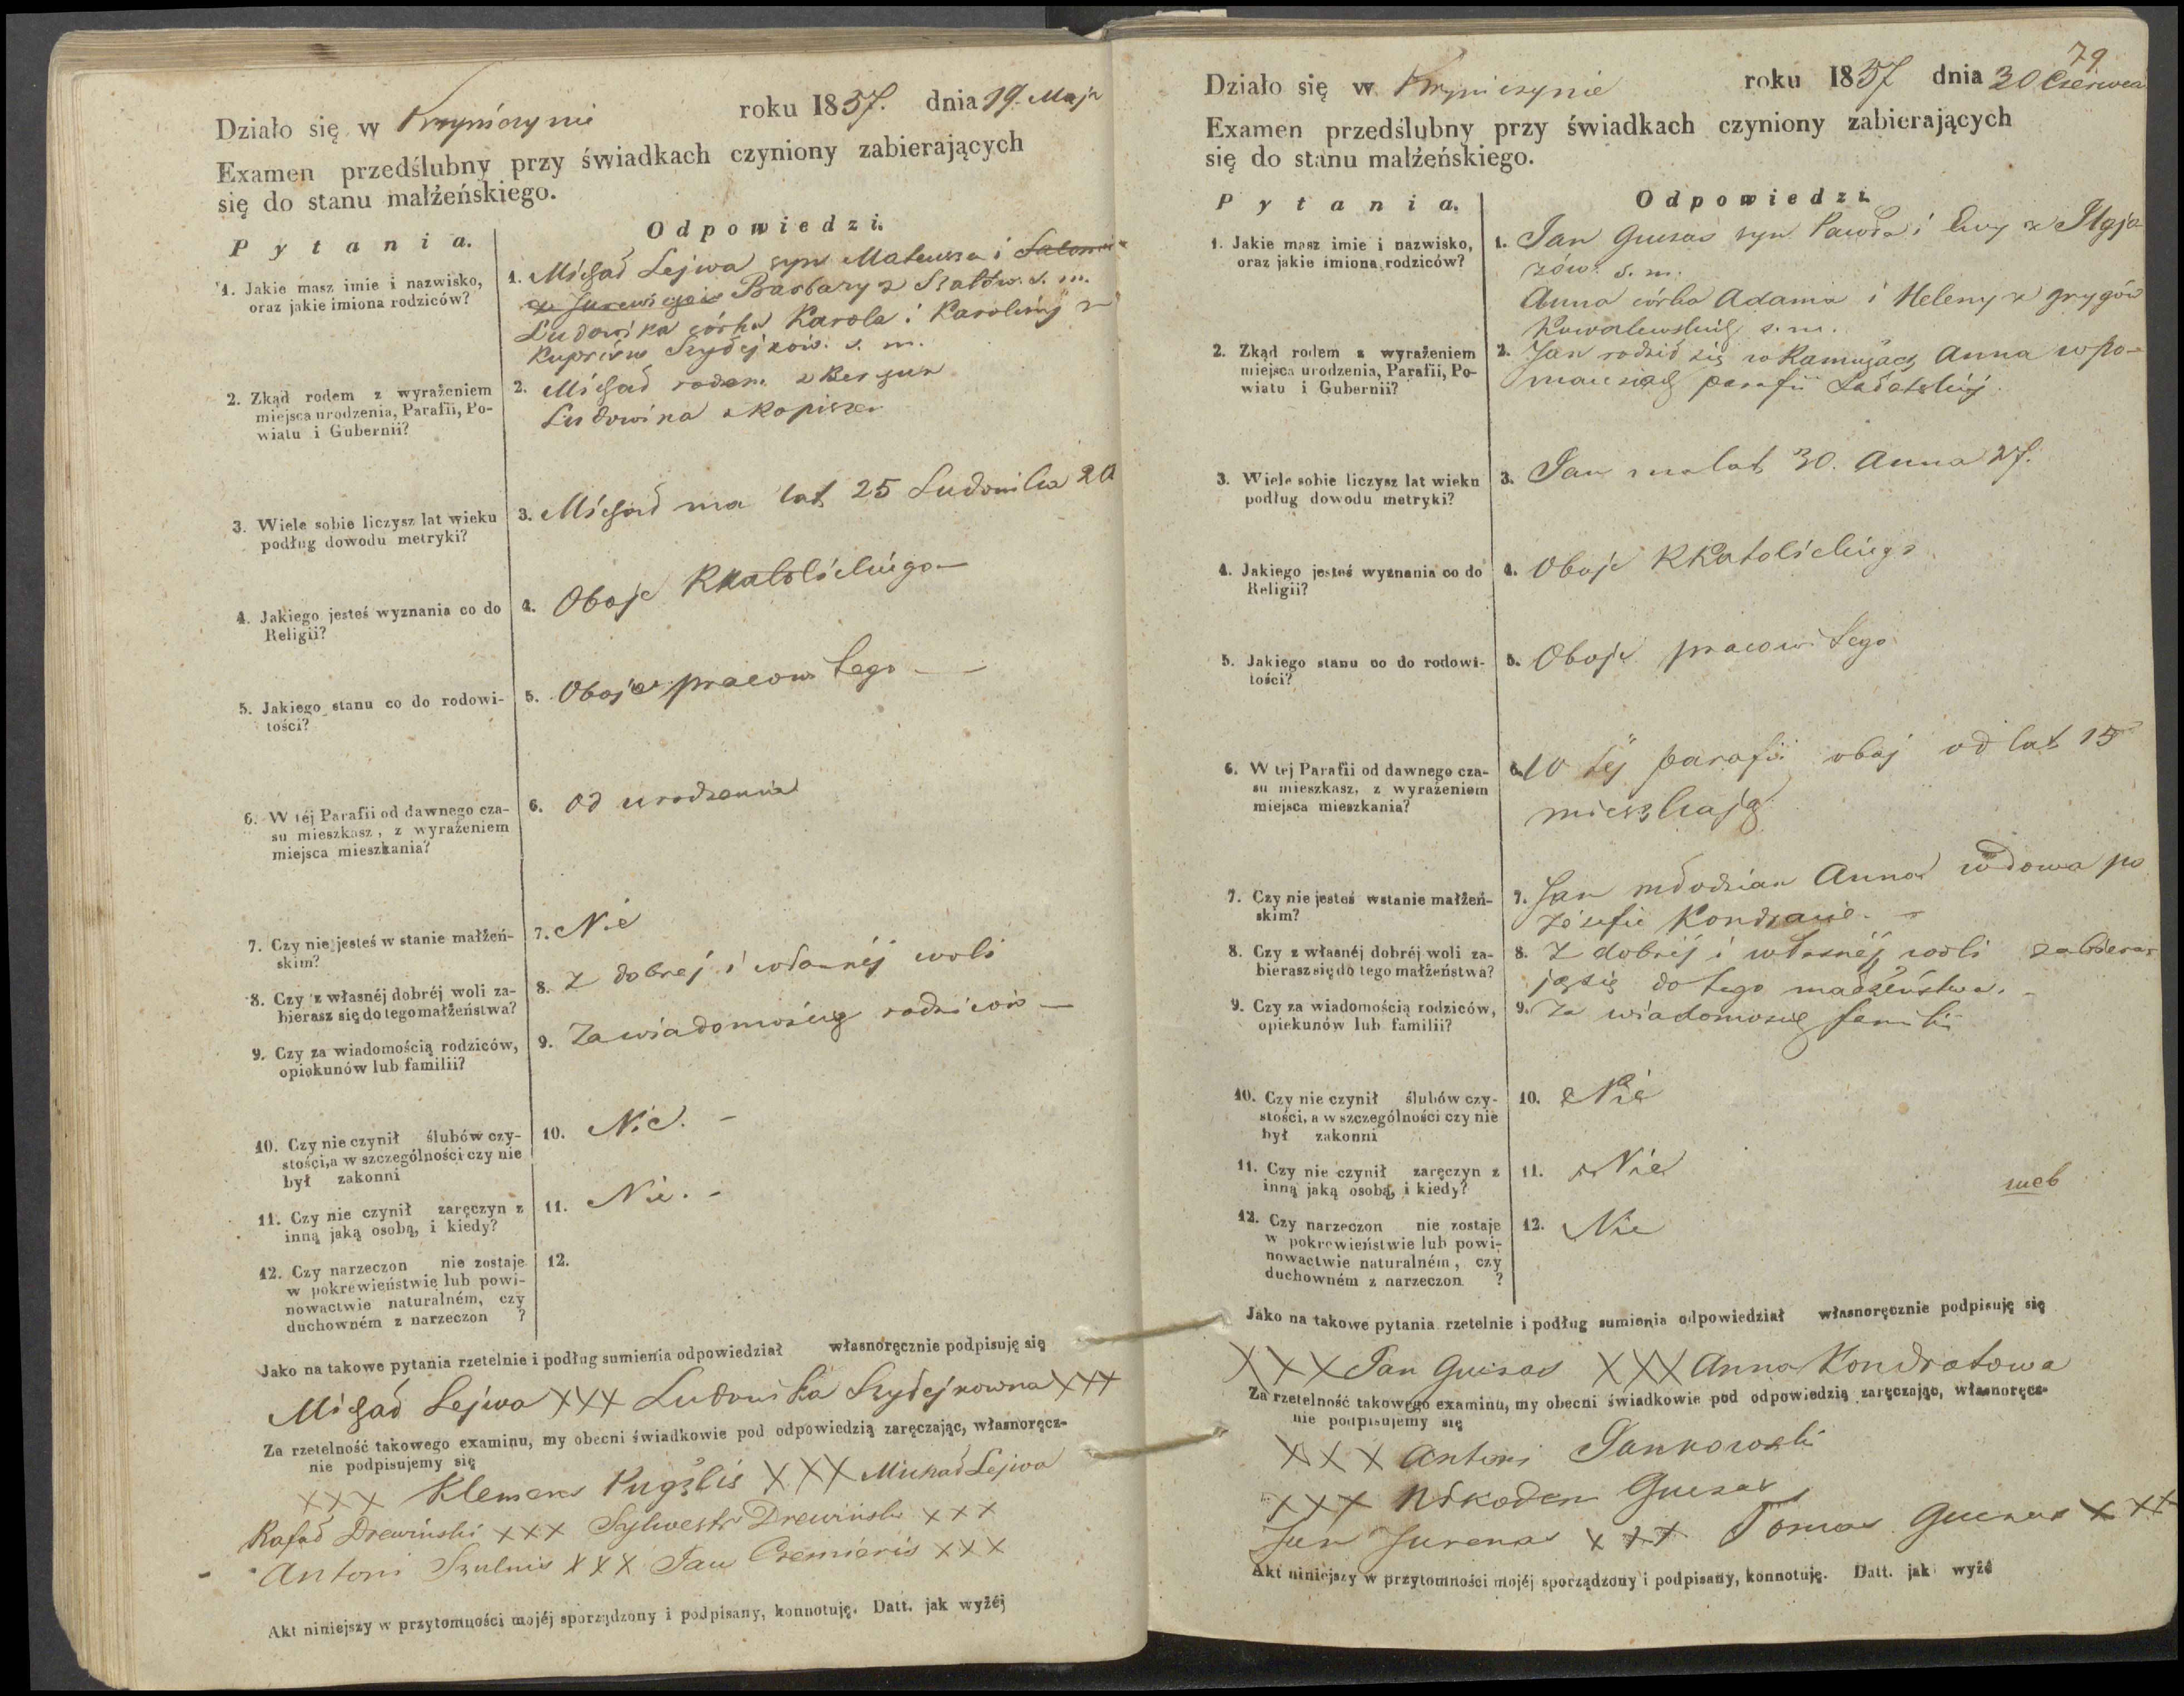 Działo się w Krzyniczynie roku 1857. dnia 19. Maja
Examen przedślubny przy świadkach czyniony zabierających
się do stanu małżeńskiego.
Pytania.
Odpowiedzi.
1. Jakie masz imie i nazwisko,
oraz jakie imiona rodziców?
1. Michał Lejwa syn Mateusza i
Barbary z s. m.
Ludowika córka Karola i Karoliny z
Szydejków. s. m.
2. Zkąd rodem z wyrażeniem
miejsca urodzenia, Parafii, Po-
wiatu i Gubernii?
2. Michał rodem z
Ludowika z
3. Wiele sobie liczysz lat wieku
podług dowodu metryki?
3. Michał ma lat 25 Ludowika 20
4. Jakiego jesteś wyznania co do
Religii?
4. Oboje RKatolickiego
5. Jakiego stanu co do rodowi-
tości?
5. Oboje pracowitego
6. W téj Parafii od dawnego cza-
su mieszkasz, z wyrażeniem
miejsca mieszkania?
6. od urodzenia
7. Czy nie jesteś w stanie małżeń-
skim?
7. Nie
8. Czy z własnéj dobréj woli za-
bierasz się do tego małżeństwa?
8. Z dobrej i własnéj woli
9. Czy za wiadomością rodziców,
opiekunów lub familii?
9. Za wiadomością rodziców
10. Czy nie czynił ślubów czy-
stości, a w szczególności czy nie
był zakonni
10. Nie. -
11. Czy nie czynił zaręczyn z
inną jaką osobą, i kiedy?
11. Nie. -
12. Czy narzeczon nie zostaje
w pokrewieństwie lub powi-
nowactwie naturalném, czy
duchowném z narzeczon ?
12.
Jako na takowe pytania rzetelnie i podług sumienia odpowiedział własnoręcznie podpisuję się
Michał Lejwa XXX Ludowika Szydejkowna XXX
Za rzetelność takowego examinu, my obecni świadkowie pod odpowiedzią zaręczając, własnoręcz-
nie podpisujemy się
XXX Klemens Pugżlis XXX Michał Lejwa
Rafał Drewiński XXX Sylwestr Drewiński XXX
Antoni Szulnis XXX Jan XXX
Akt niniejszy w przytomności mojéj sporządzony i podpisany, konnotuję. Datt. jak wyżéj
79
Działo się w Krzyniczynie roku 1857 dnia 30 Czerwca
Examen przedślubny przy świadkach czyniony zabierających
się do stanu małżeńskiego.
Pytania.
Odpowiedzi.
1. Jakie masz imie i nazwisko,
oraz jakie imiona rodziców?
1. Jan Guzas syn Pawła i Ewy z
s. m.
Anna córka Adama i Heleny z Grygów
Kowalewskich s. m.
2. Zkąd rodem z wyrażeniem
miejsca urodzenia, Parafii, Po-
wiatu i Gubernii?
2. Jan rodził się w Anna w
parafii
3. Wiele sobie liczysz lat wieku
podług dowodu metryki?
3. Jan ma lat 30. Anna 27.
4. Jakiego jesteś wyznania co do
Religii?
4. Oboje RKatolickiego
5. Jakiego stanu co do rodowi-
tości?
5. Oboje pracowitego
6. W tej Parafii od dawnego cza-
su mieszkasz, z wyrażeniem
miejsca mieszkania?
6. W tej parafii oboj od lat 15
mieszkają
7. Czy nie jesteś wstanie małżeń-
skim?
7. Jan młodzian Anna wdowa po
Józefie Kondracie. -
8. Czy z własnéj dobréj woli za-
bierasz się do tego małżeństwa?
8. Z dobréj i własnéj woli zabiera-
ją się do tego małżeństwa. -
9. Czy za wiadomością rodziców,
opiekunów lub familii?
9. Za wiadomością familii
10. Czy nie czynił ślubów czy-
stości, a w szczególności czy nie
był zakonni
10. Nie
11. Czy nie czynił zaręczyn z
inną jaką osobą, i kiedy?
11. Nie
12. Czy narzeczon nie zostaje
w pokrewieństwie lub powi-
nowactwie naturalném, czy
duchowném z narzeczon ?
12. Nie
Jako na takowe pytania rzetelnie i podług sumienia odpowiedział własnoręcznie podpisuję się
XXX Jan Guzas XXX Anna Kondratowa
Za rzetelność takowego examinu, my obecni świadkowie pod odpowiedzią zaręczając, własnoręcz-
nie podpisujemy się
XXX Antoni Jankowski
XXX Nikodem Guzas
Jan Jurenas XXX Tomas Guzas XXX
Akt niniejszy w przytomności mojéj sporządzony i podpisany, konnotuję. Datt. jak wyżé